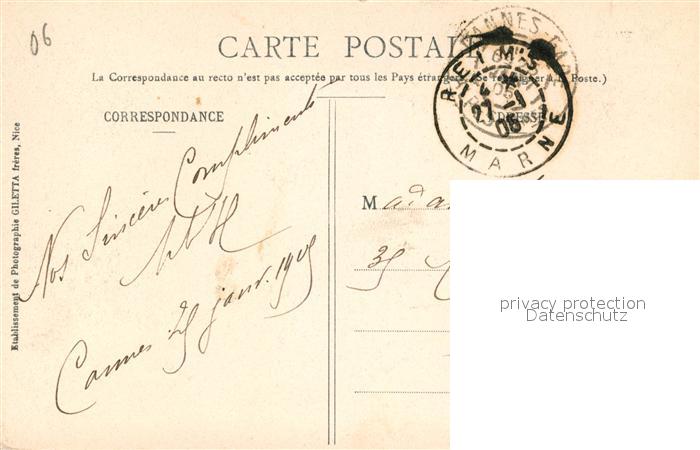 06
CARTE POSTALE
(La Correspondance au recto n'est pas acceptée par tous les Pays étrangers. (Se renseigner à la Poste.)
CORRESPONDANCE
ADRESSE
REIMS
27 -1
05
MARNE
CANNES
Nos Sincères Compliments
Cannes 25 janv. 1905
Madame
35
Etablissement de Photographie GILETTA frères, Nice
privacy protection
Datenschutz